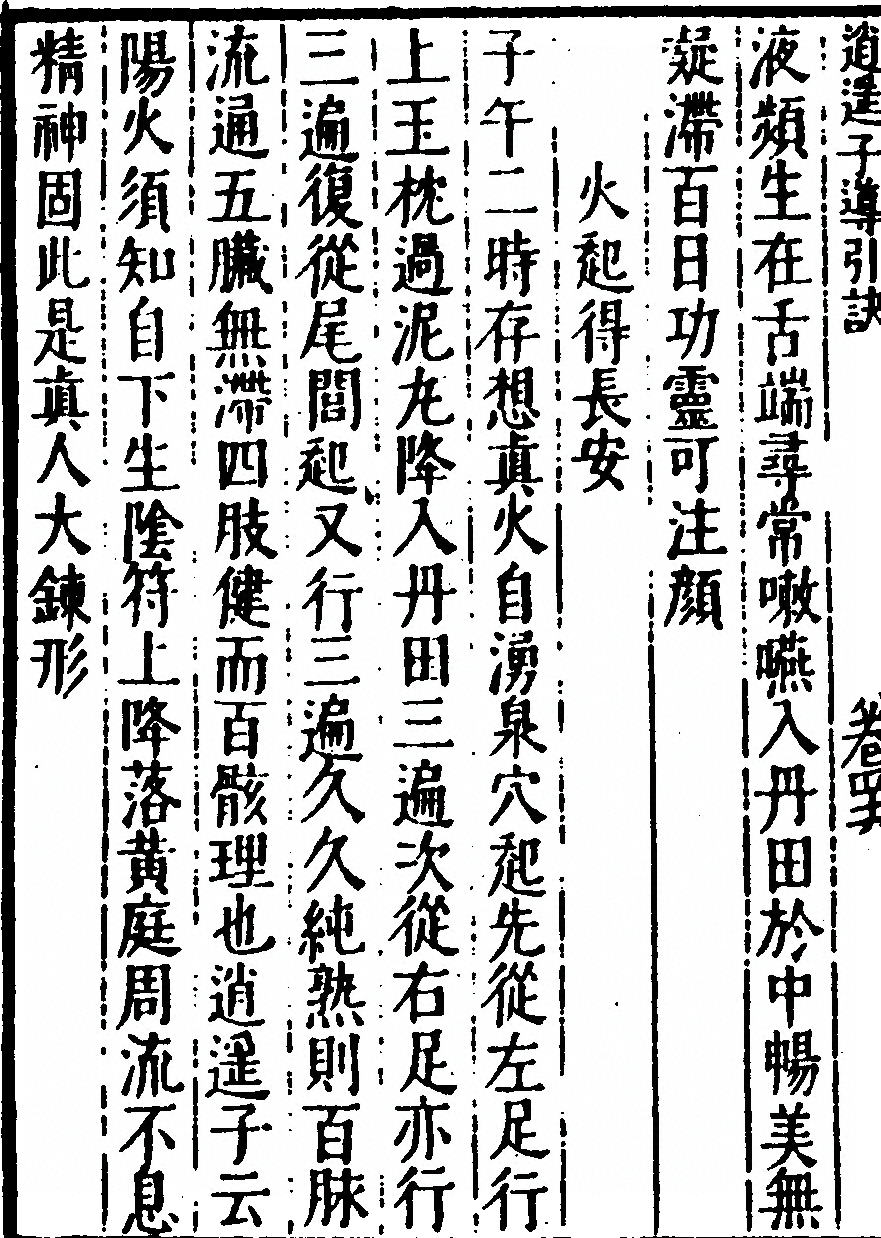 逍遥子導引訣 卷四
液頻生在舌端尋常嗽嚥入丹田於中暢美無
凝滯百日功靈可注顔
火起得長安
子午二時存想眞火自湧泉穴起先從左足行
上玉枕過泥丸降入丹田三遍次從右足亦行
三遍復從尾閭起又行三遍久久純熟則百脉
流通五臟無滯四肢健而百骸理也逍遥子云
陽火須知自下生陰符上降落黄庭周流不息
精神固此是眞人大鍊形